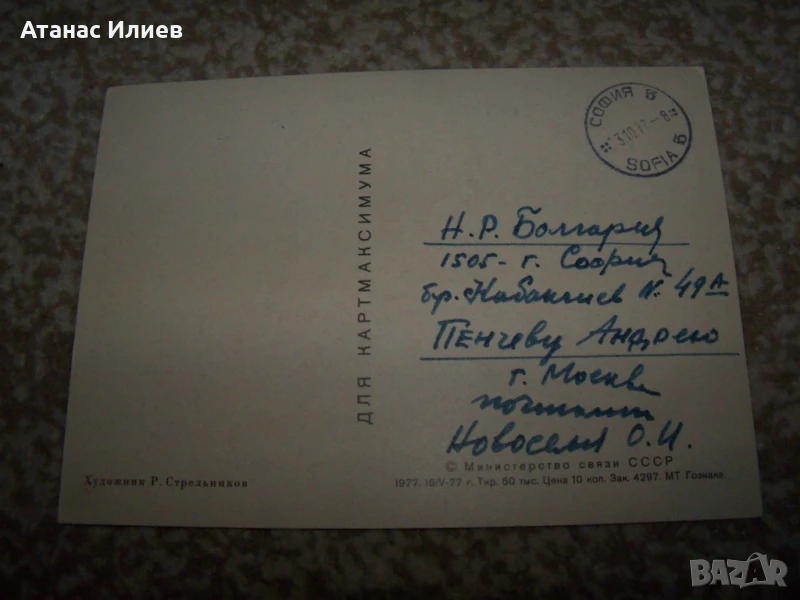 Атанас Илиев
СОФИЯ Б
3.10.77-8
SOFIA Б
ДЛЯ КАРТМАКСИМУМА
Н.Р. Болгария
1505- г. София
бр. Кабакчиев №. 49А
ПЕНЧЕВУ АНДРЕЮ
г. Москва
почтамт
Новоселья О.И.
© Министерство связи СССР
Художник Р. Стрельников
1977. 19/V-77 г. Тир. 50 тыс. Цена 10 коп. Зак. 4297. МТ Гознака.
BAZAR